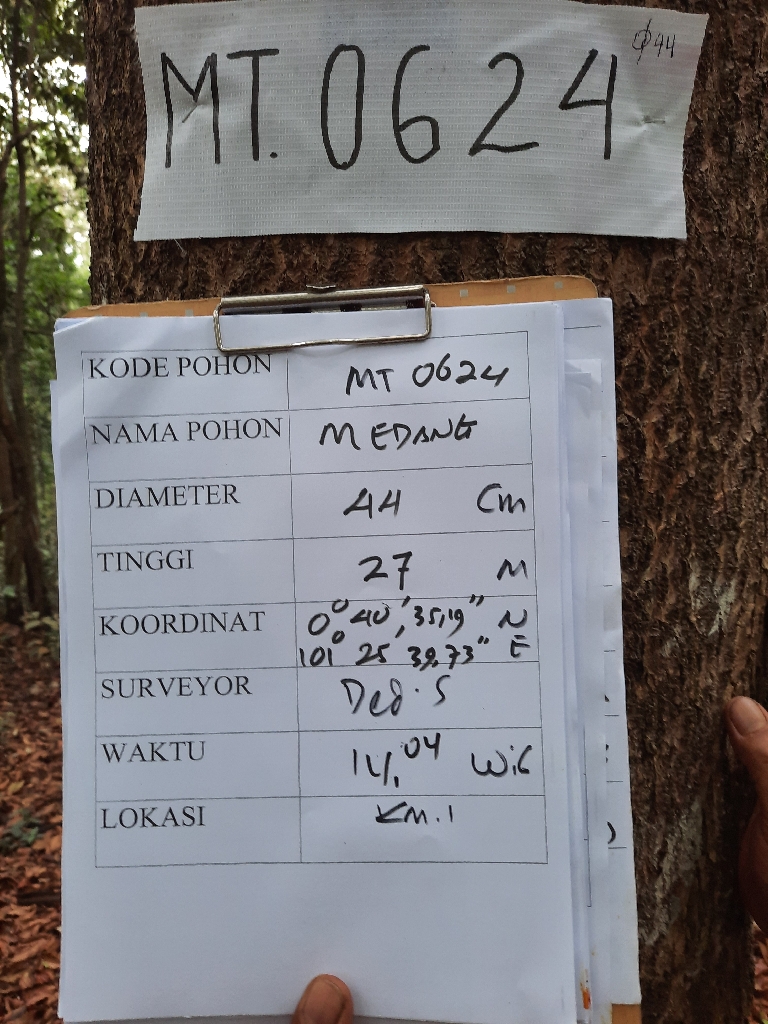 MT. 0624
φ44
KODE POHON MT 0624
NAMA POHON MEDANG
DIAMETER 44 Cm
TINGGI 27 M
KOORDINAT 0° 40' 35,19" N
101° 25' 39,73" E
SURVEYOR Ded. S
WAKTU 14,04 Wib
LOKASI KM. 1